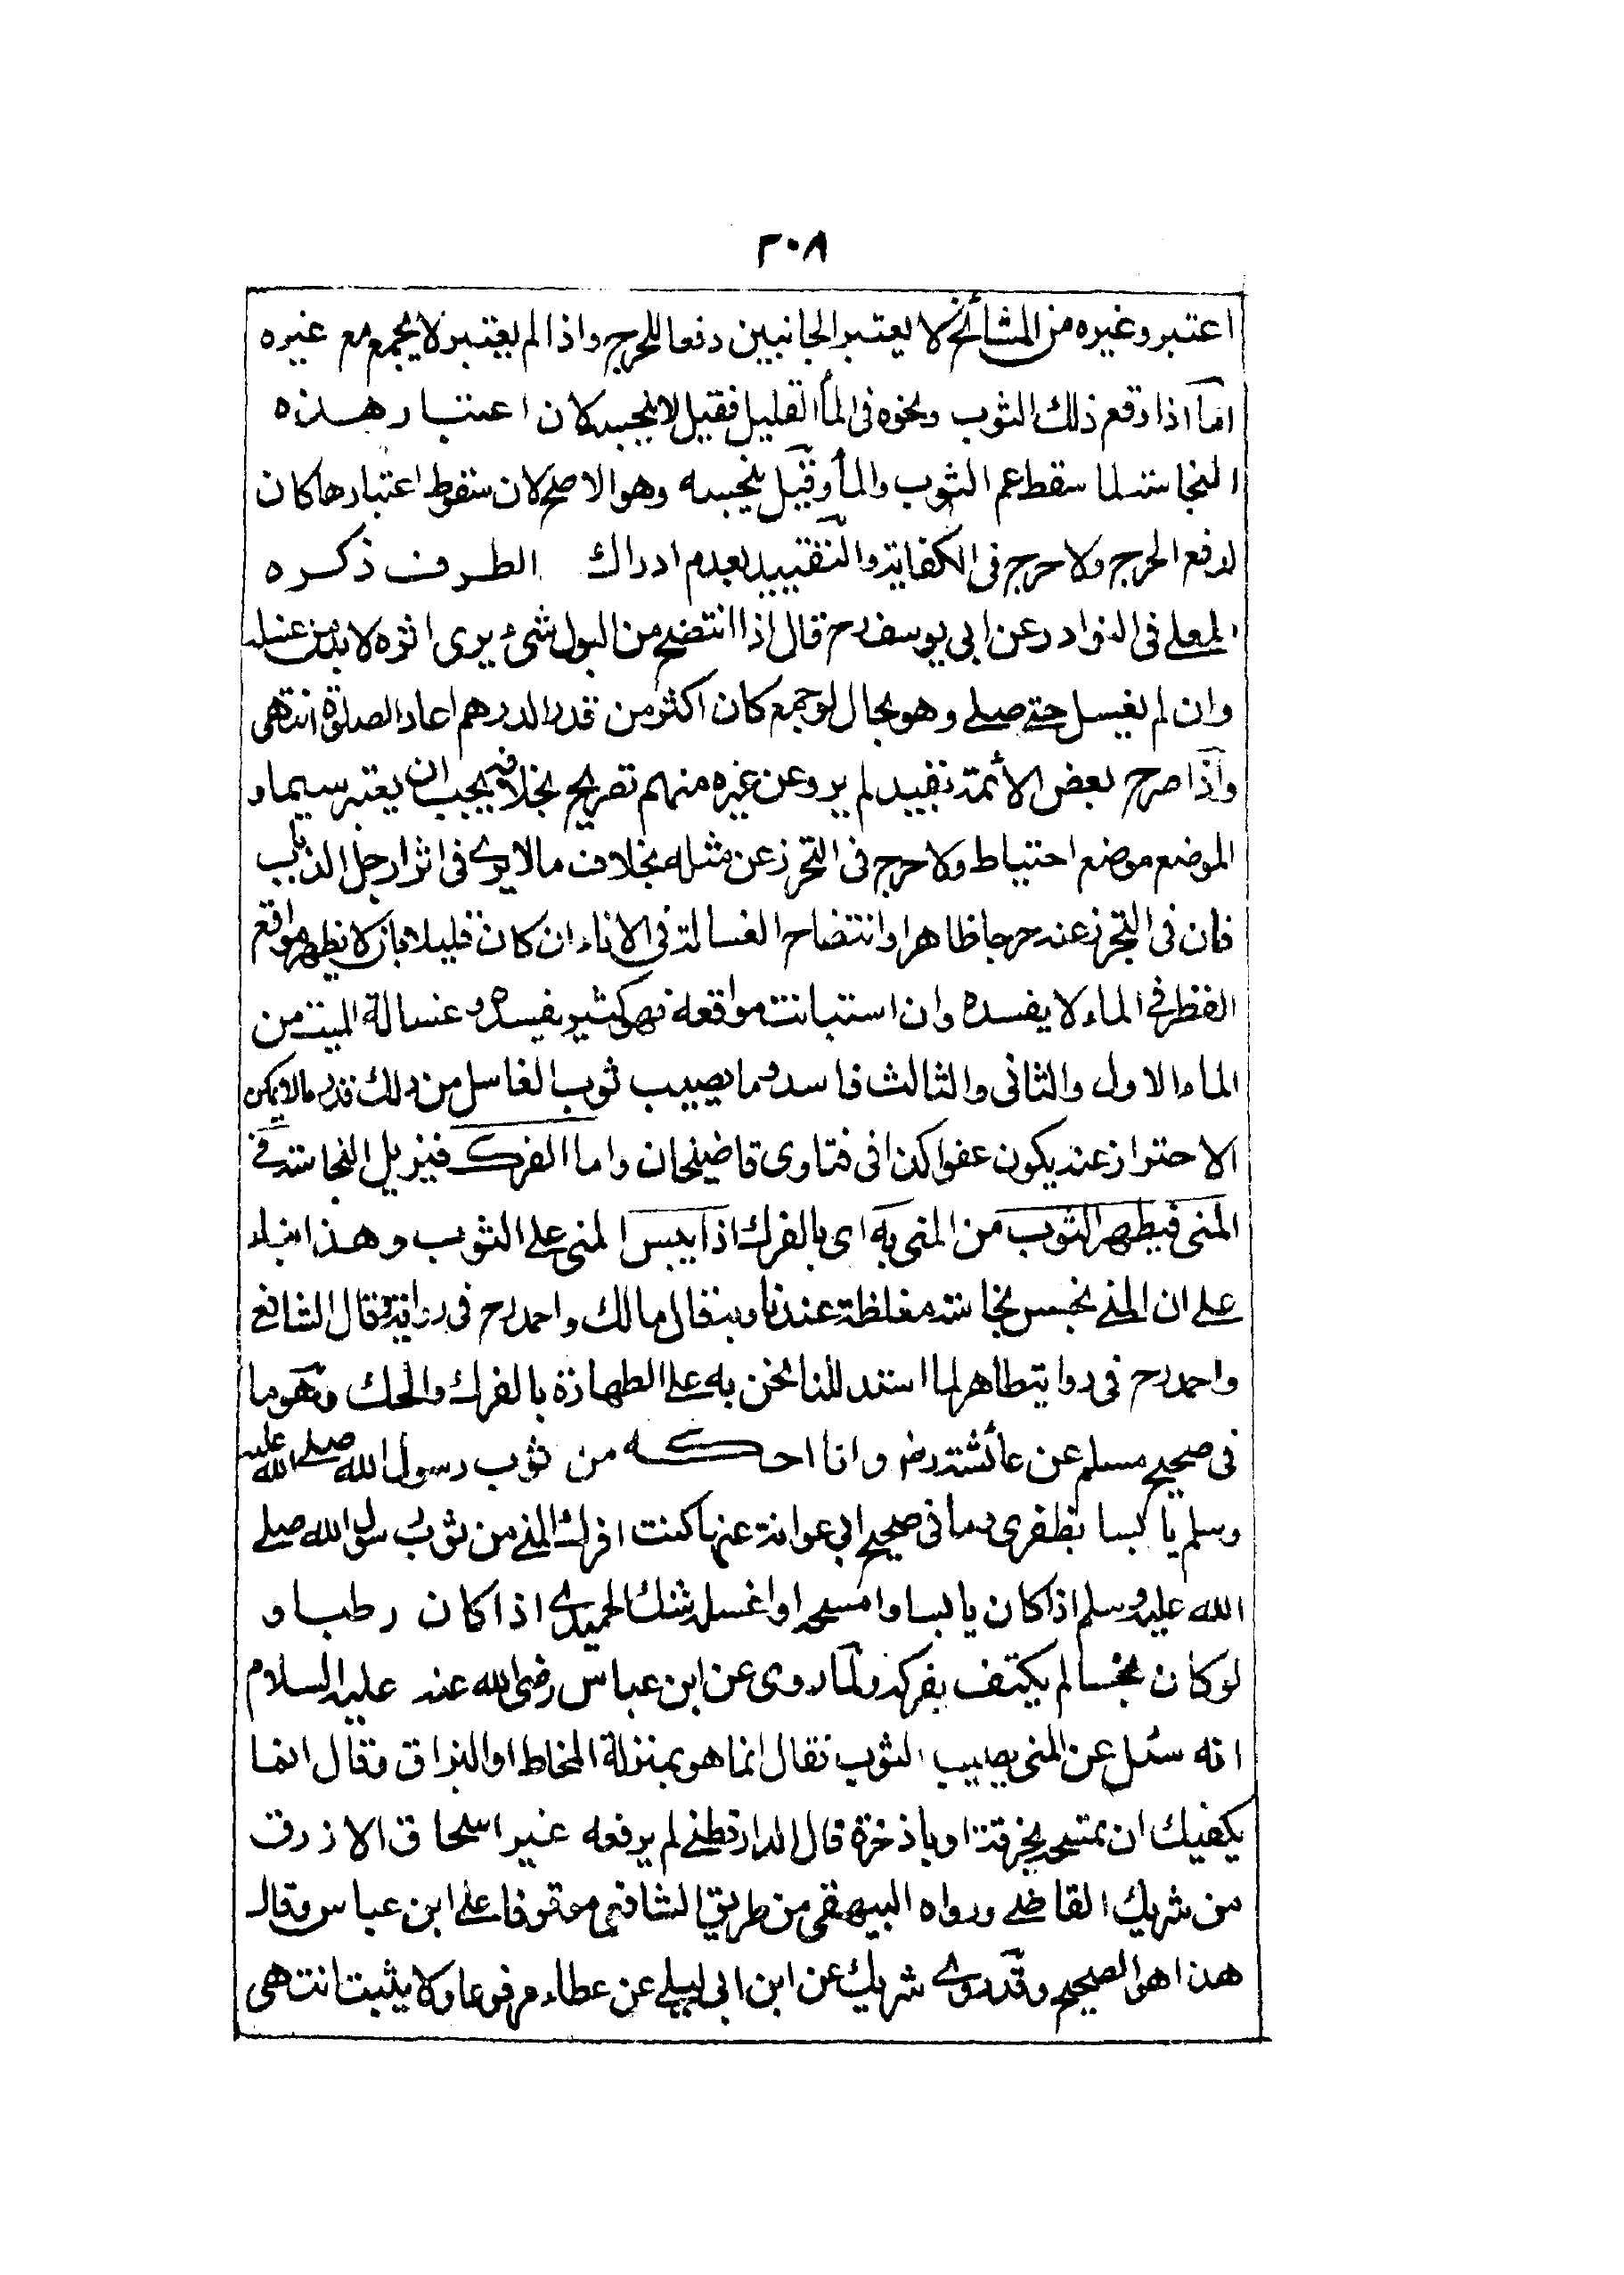 ٢٠٨
اعتبر وغيره من المشائخ لا يعتبر الجانبين دفعا للحرج واذا لم يعتبر لا يجمع مع غيره
اما اذا وقع ذلك الثوب ونحوه في الماء القليل فقيل لا ينجسه لان اعتبار هذه
النجاسة لما سقط عم الثوب والماء وقيل ينجسه وهو الاصح لان سقوط اعتبارها كان
لدفع الحرج ولا حرج في الكفاية والتقييد بعدم ادراك الطرف ذكره
المعلى في النوادر عن ابي يوسف رح قال اذا انتضح من البول شىء يرى اثره لا بد من غسله
وان لم يغسل حتى صلى وهو بحال لو جمع كان اكثر من قدر الدرهم اعاد الصلوة انتهى
واذا صرح بعض الأئمة بقيد لم يرو عن غيره منهم تصريح بخلافه يجب ان يعتبر سيما و
الموضع موضع احتياط ولا حرج في التحرز عن مثله بخلاف ما لا يرى في اثر ارجل الذباب
فان في التحرز عنه حرجا ظاهرا وانتضاح الغسالة في الاناء ان كان قليلا بان لا يظهر مواقع
القطر في الماء لا يفسده وان استبانت مواقعه فهو كثير يفسده وغسالة الميت من
الماء الاول والثاني والثالث فاسد وما يصيب ثوب الغاسل من ذلك قدر مالا يمكن
الاحتراز عنه يكون عفوا كذا في فتاوى قاضيخان واما الفرك فيزيل النجاسة في
المنى فيطهر الثوب من المنى به اى بالفرك اذا يبس المنى على الثوب وهذا بناء
على ان المنى نجس نجاسة مغلظة عندنا وبه قال مالك واحمد رح في رواية وقال الشافعي
واحمد رح في رواية طاهر لما استدللنا نحن به على الطهارة بالفرك والحك وهو ما
في صحيح مسلم عن عائشة رض وانا احكه من ثوب رسول الله صلى الله عليه
وسلم يابسا بظفرى وما في صحيح ابي عوانة عنها كنت افرك المنى من ثوب رسول الله صلى
الله عليه وسلم اذا كان يابسا وامسحه او اغسله شك الحميدى اذا كان رطبا و
لو كان نجسا لم يكتف بفركه ولما روى عن ابن عباس رضى الله عنه عليه السلام
انه سئل عن المنى يصيب الثوب فقال انما هو بمنزلة المخاط او البزاق وقال انما
يكفيك ان تمسحه بخرقة او باذخرة قال الدارقطنى لم يرفعه غير اسحاق الازرق
من شريك القاضى ورواه البيهقى من طريق الشافعي موقوفا على ابن عباس وقال
هذا هو الصحيح وقد روى شريك عن ابن ابى ليلى عن عطاء مرفوعا ولا يثبت انتهى